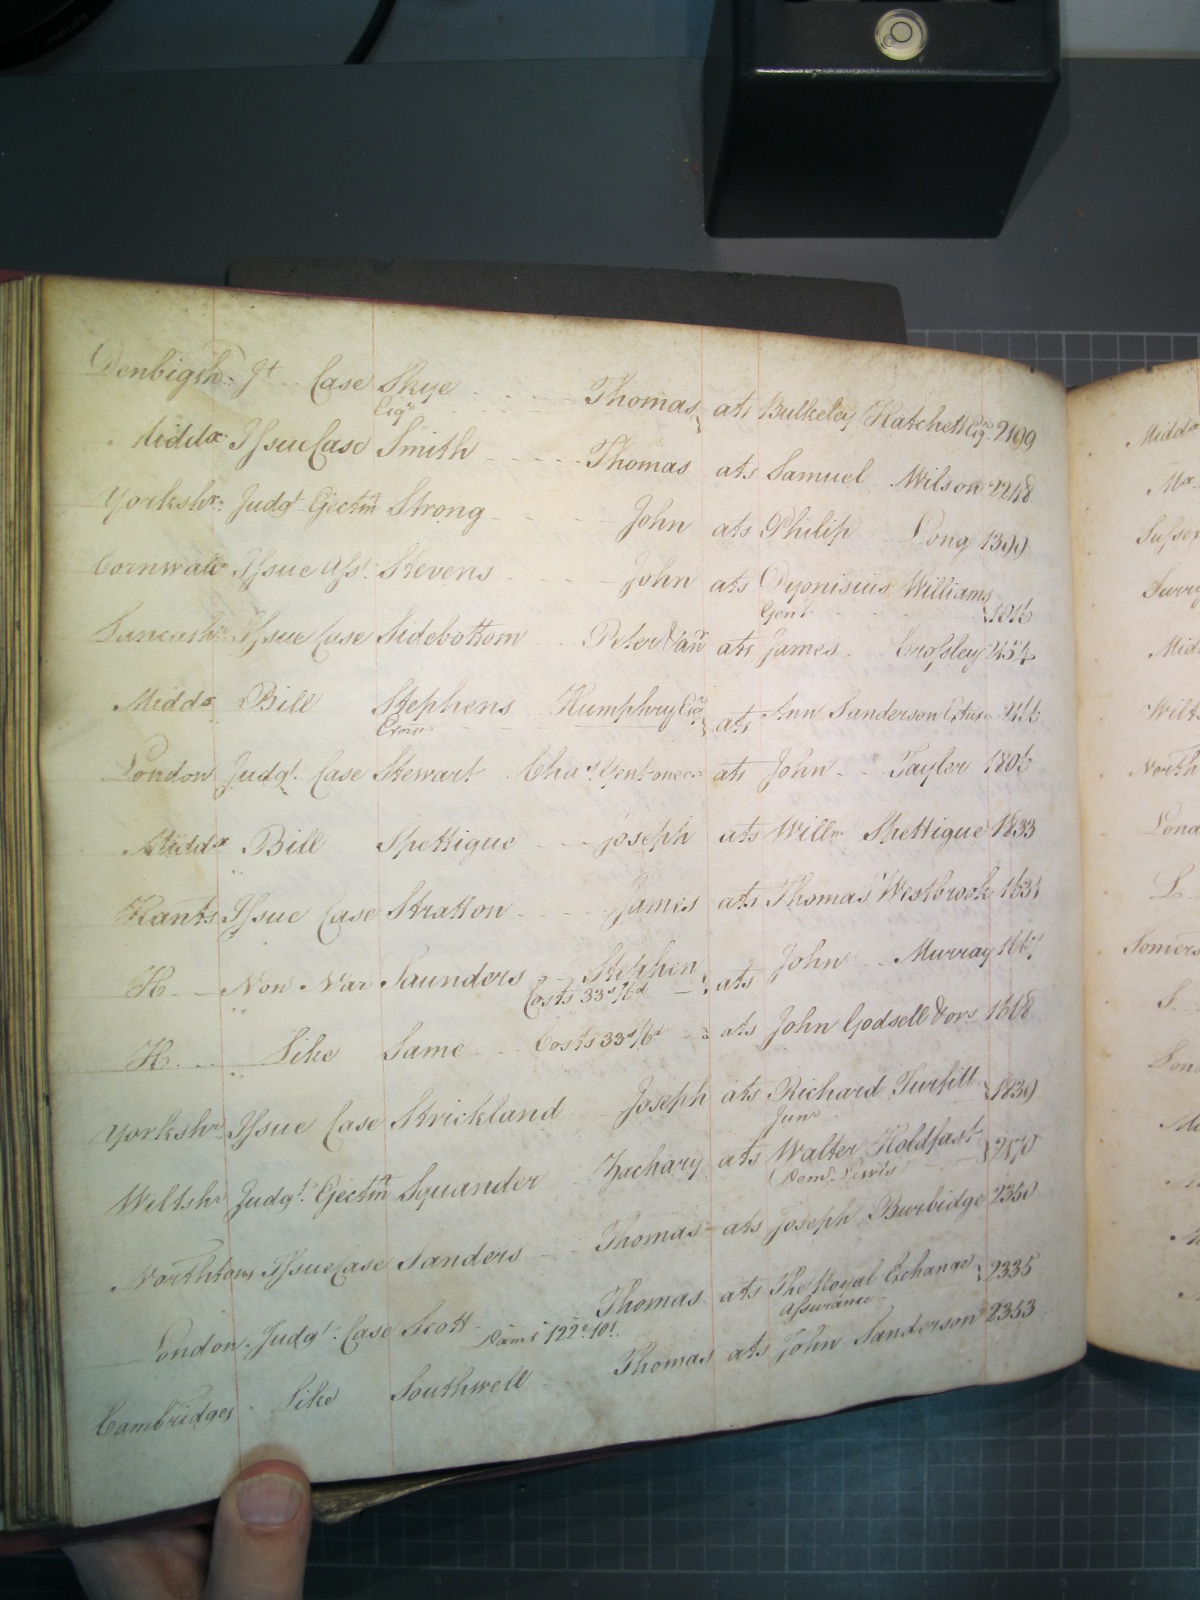 Denbighr. Jt Case Skye Thomas ats Bulkeley Hatchett Esqr. 2199
Esqr
Middx Issue Case Smith Thomas ats Samuel Wilson 2248
Yorkshr. Judgt Ejectmt Strong John ats Philip Long 1399
Cornwall Issue Asst. Stevens John ats Dyonisius Williams
Gent 1816
Lancashr Issue Case Sidebottom Peter & anr ats James Crossley 2154
Middx Bill Stephens Humphry Esqr ats Ann Sanderson Extrix
London Judgt. Case Stewart Chas. Gent one &c ats John Tayler 1806
Middx Bill Spettigue Joseph ats Willm Spettigue 1833
Hants Issue Case Stratton James ats Thomas Westbrook
H Non Pros Saunders Stephen ats John Murray 1667
Costs 33s/6d
H Like Same Costs 33s/6d ats John Godsell & ors 1668
Yorkshr Issue Case Strickland Joseph ats Richard Turfitt 1839
Junr
Wiltshr Judgt. Ejectmt Squander Zachary ats Walter Holdfast
Dem. Lewis
Northton Issue Case Sanders Thomas ats Joseph Burbidge 2350
London Judgt. Case Scott Thomas ats The Royal Exchange 2335
Dams 122£.10s. Assurance
Cambridges Like Southwell Thomas ats John Sanderson 2353
Middx
Mx
Sussex
Surry
Midd
Wilts
North
Lond
L
Somers
S
Lon